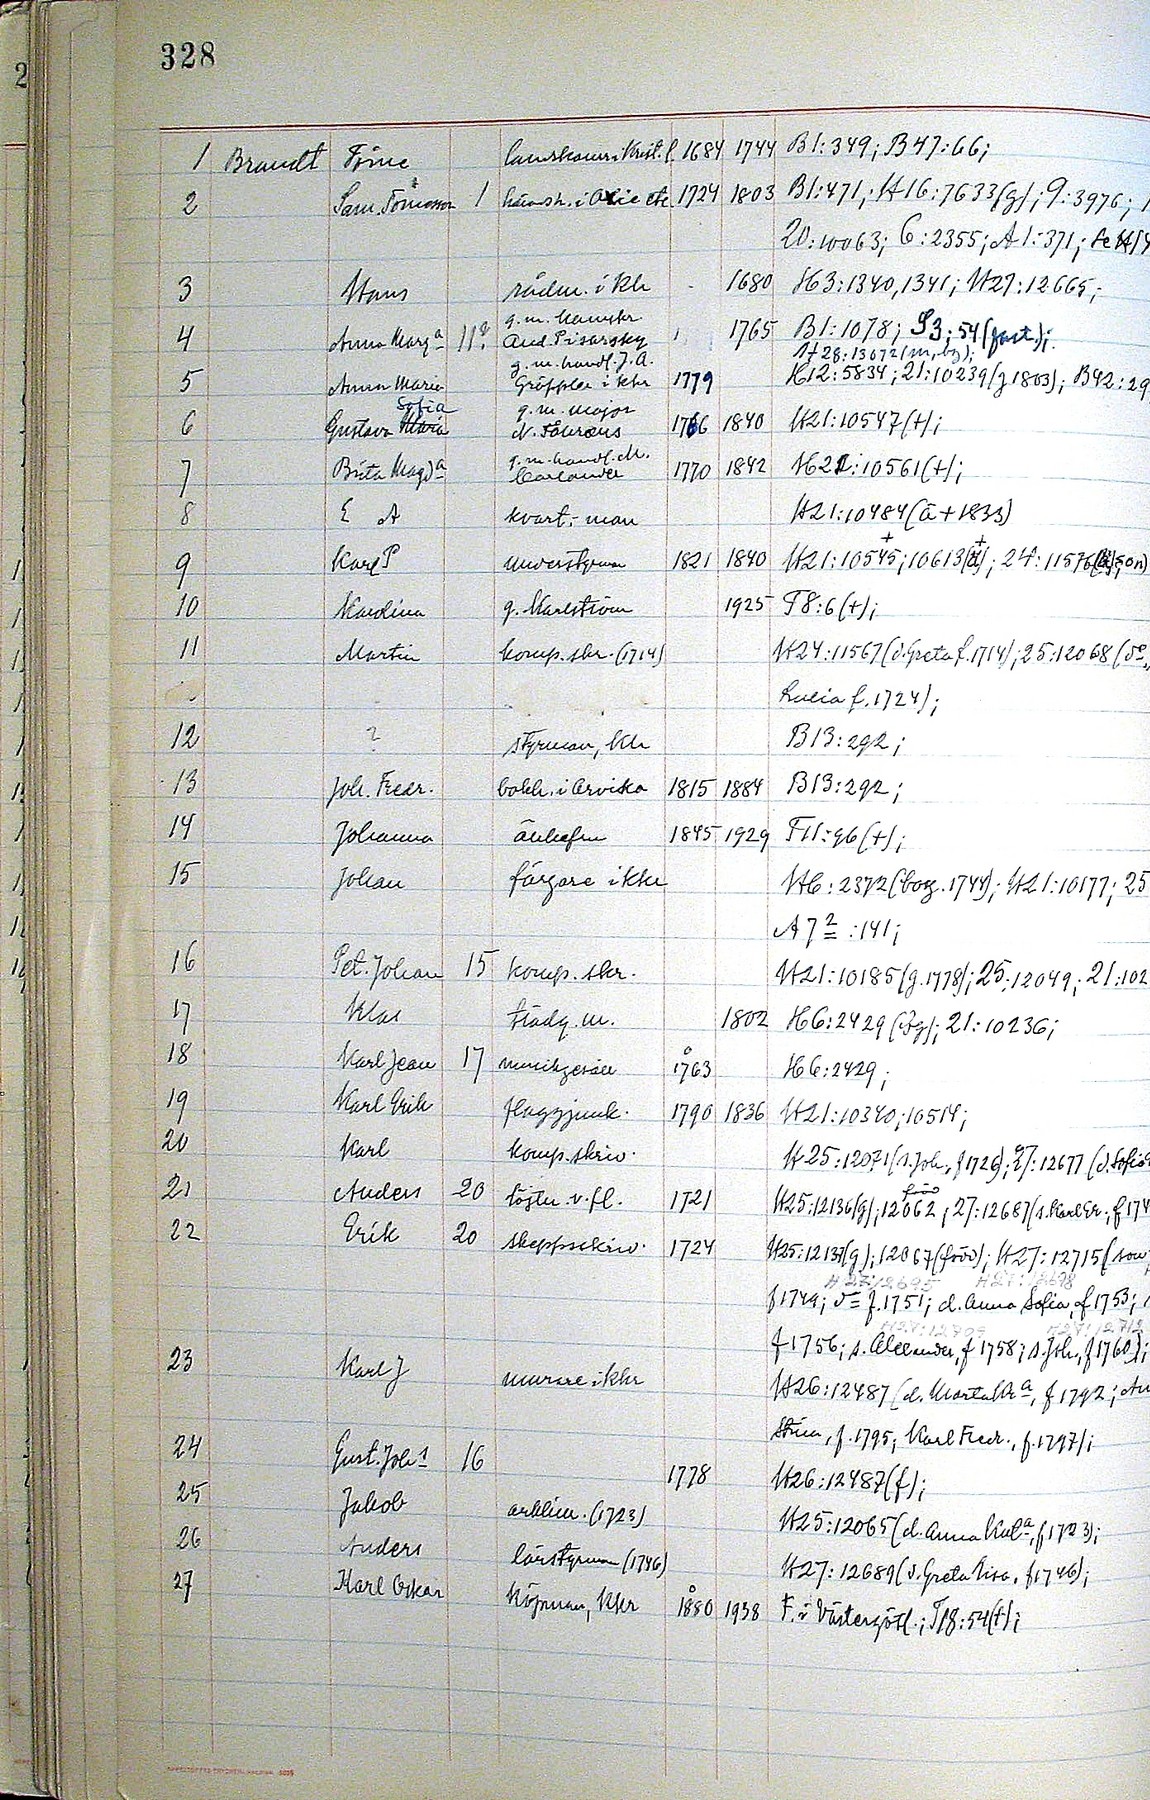 328
1 Brandt Töne 1684 1744 B1:349; B47:66;
2 Sam. Tönesson 1 häradsh. i Oxie etc. 1724 1803 B1:471; H16:7633(g); 9:3976;
20:10063; 6:2355; A1:371;
3 Hans rådm. i Kkr 1680 H3:1340,1341; H27:12665;
g.m. kamrer
4 Anna Marg:a 11? And. Pisarsky 1765 B1:1078; S3:54(fast.);
g.m. handl. J.A. H28:13072(m, by);
5 Anna Maria Gröpple i Kkr 1779 H12:5834; 21:10239(g 1803); B42:29
Sofia g.m. major
6 Gustava Maria N. Fåhræus 1766 1840 H21:10547(+);
g.m. handl. M.
7 Brita Magd:a Carlander 1770 1842 H21:10561(+);
8 E A kvart.-man H21:10484(ä+1833)
+ +
9 Karl P understyrman 1821 1840 H21:10545; 10613(ä); 24:11576 son)
10 Karolina g. Karlström 1925 F8:6(+);
11 Martin komp.skr. (1714) H24:11567(d. Greta f. 1714); 25:12068(d:o
Lucia f. 1724);
12 ? styrman, Kkr B13:292;
13 Joh. Fredr. bokh. i Arvika 1815 1884 B13:292;
14 Johanna änkefru 1845 1929 F11:96(+);
15 Johan färgare i Kkr H6:2372(borg. 1744); H21:10177; 25
A7 2 :141;
16 Pet. Johan 15 komp. skr. H21:10185(g. 1778); 25:12049; 21:102
17 Klas trädg.m. 1802 H6:2429; 21:10236;
18 Karl Jean 17 musikgesäll 1763 H6:2429;
19 Karl Erik flaggjunk. 1790 1836 H21:10340; 10514;
20 Karl komp.skriv. H25:12071(s. Joh., f 1726); 27:12677(d. Sofia
född
21 Anders 20 löjtn. v. fl. 1721 H25:12136(g); 12062; 27:12687(s. Karl Er., f 174
22 Erik 20 skeppsskriv. 1724 H25:12137(g); 12067(född); H27:12715(son
H27:12695 H27:12698
f 1749; d:o f. 1751; d. Anna Sofia, f 1753;
f 1756; s. Alexander, f 1758; s. Joh., f 1760);
23 Karl J murare i Kkr H26:12487(d. Marta Kr:a, f 1792;
Stina, f. 1795; Karl Fredr., f. 1797);
24 Gust. Joh:s 16 1778 H26:12487(f);
25 Jakob arklim. (1723) H25:12065(d. Anna Kat:a, f 1723);
26 Anders lärstyrman (1746) H27:12689(d. Greta Lisa, f 1746);
27 Karl Oskar köpman, Kkr 1880 1938 F. i Västergötl.; F18:54(+);